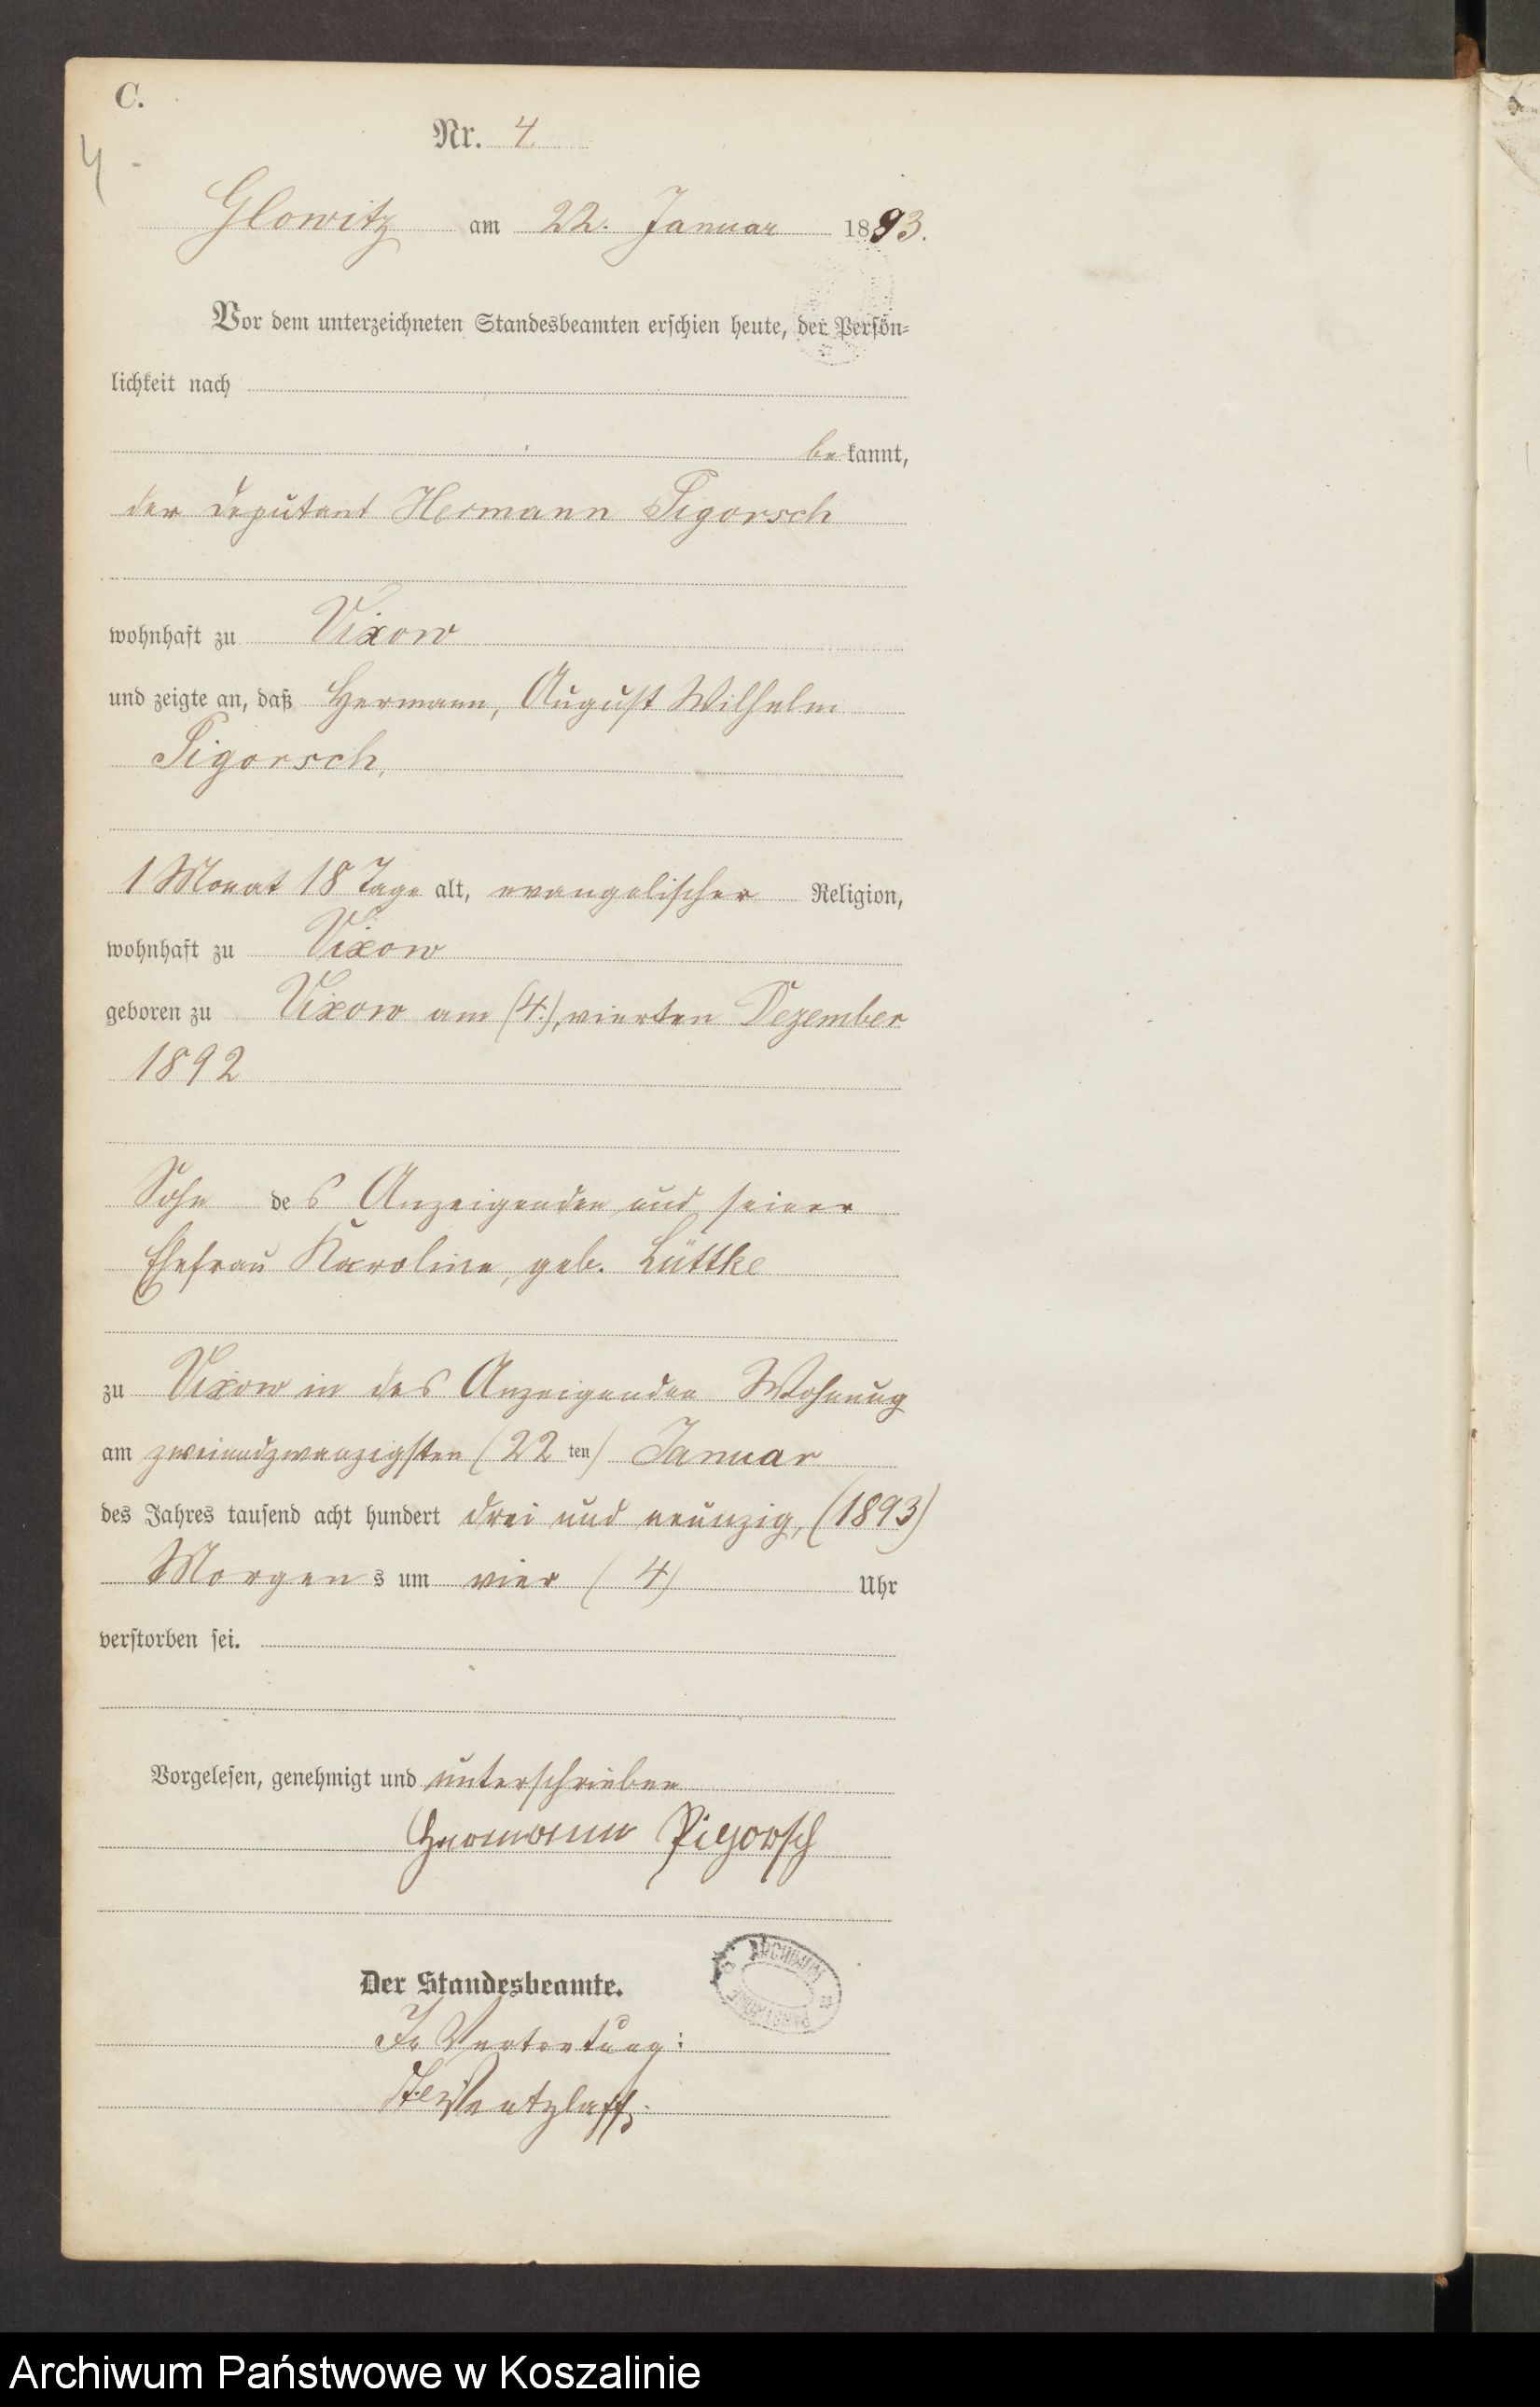 C.
Nr. 4.
4
Glowitz am 22. Januar 1893.
Vor dem unterzeichneten Standesbeamten erschien heute, der Persön-
lichkeit nach
bekannt,
der Deputant Hermann Pigorsch
wohnhaft zu Vixow
und zeigte an, daß Hermann, August Wilhelm
Pigorsch,
1 Monat 18 Tage alt, evangelischer Religion,
wohnhaft zu Vixow
geboren zu Vixow am (4.), vierten Dezember
1892
Sohn des Anzeigenden und seiner
Ehefrau Karoline, geb. Lüttke
zu Vixow in des Anzeigenden Wohnung
am zweiundzwanzigsten (22 ten) Januar
des Jahres tausend acht hundert drei und neunzig, (1893)
Morgens um vier (4) Uhr
verstorben sei.
Vorgelesen, genehmigt und unterschrieben
Hermann Pigorsch
Der Standesbeamte.
ARCHIWUM
In Vertretung:
Wentzlaff.
Archiwum Państwowe w Koszalinie